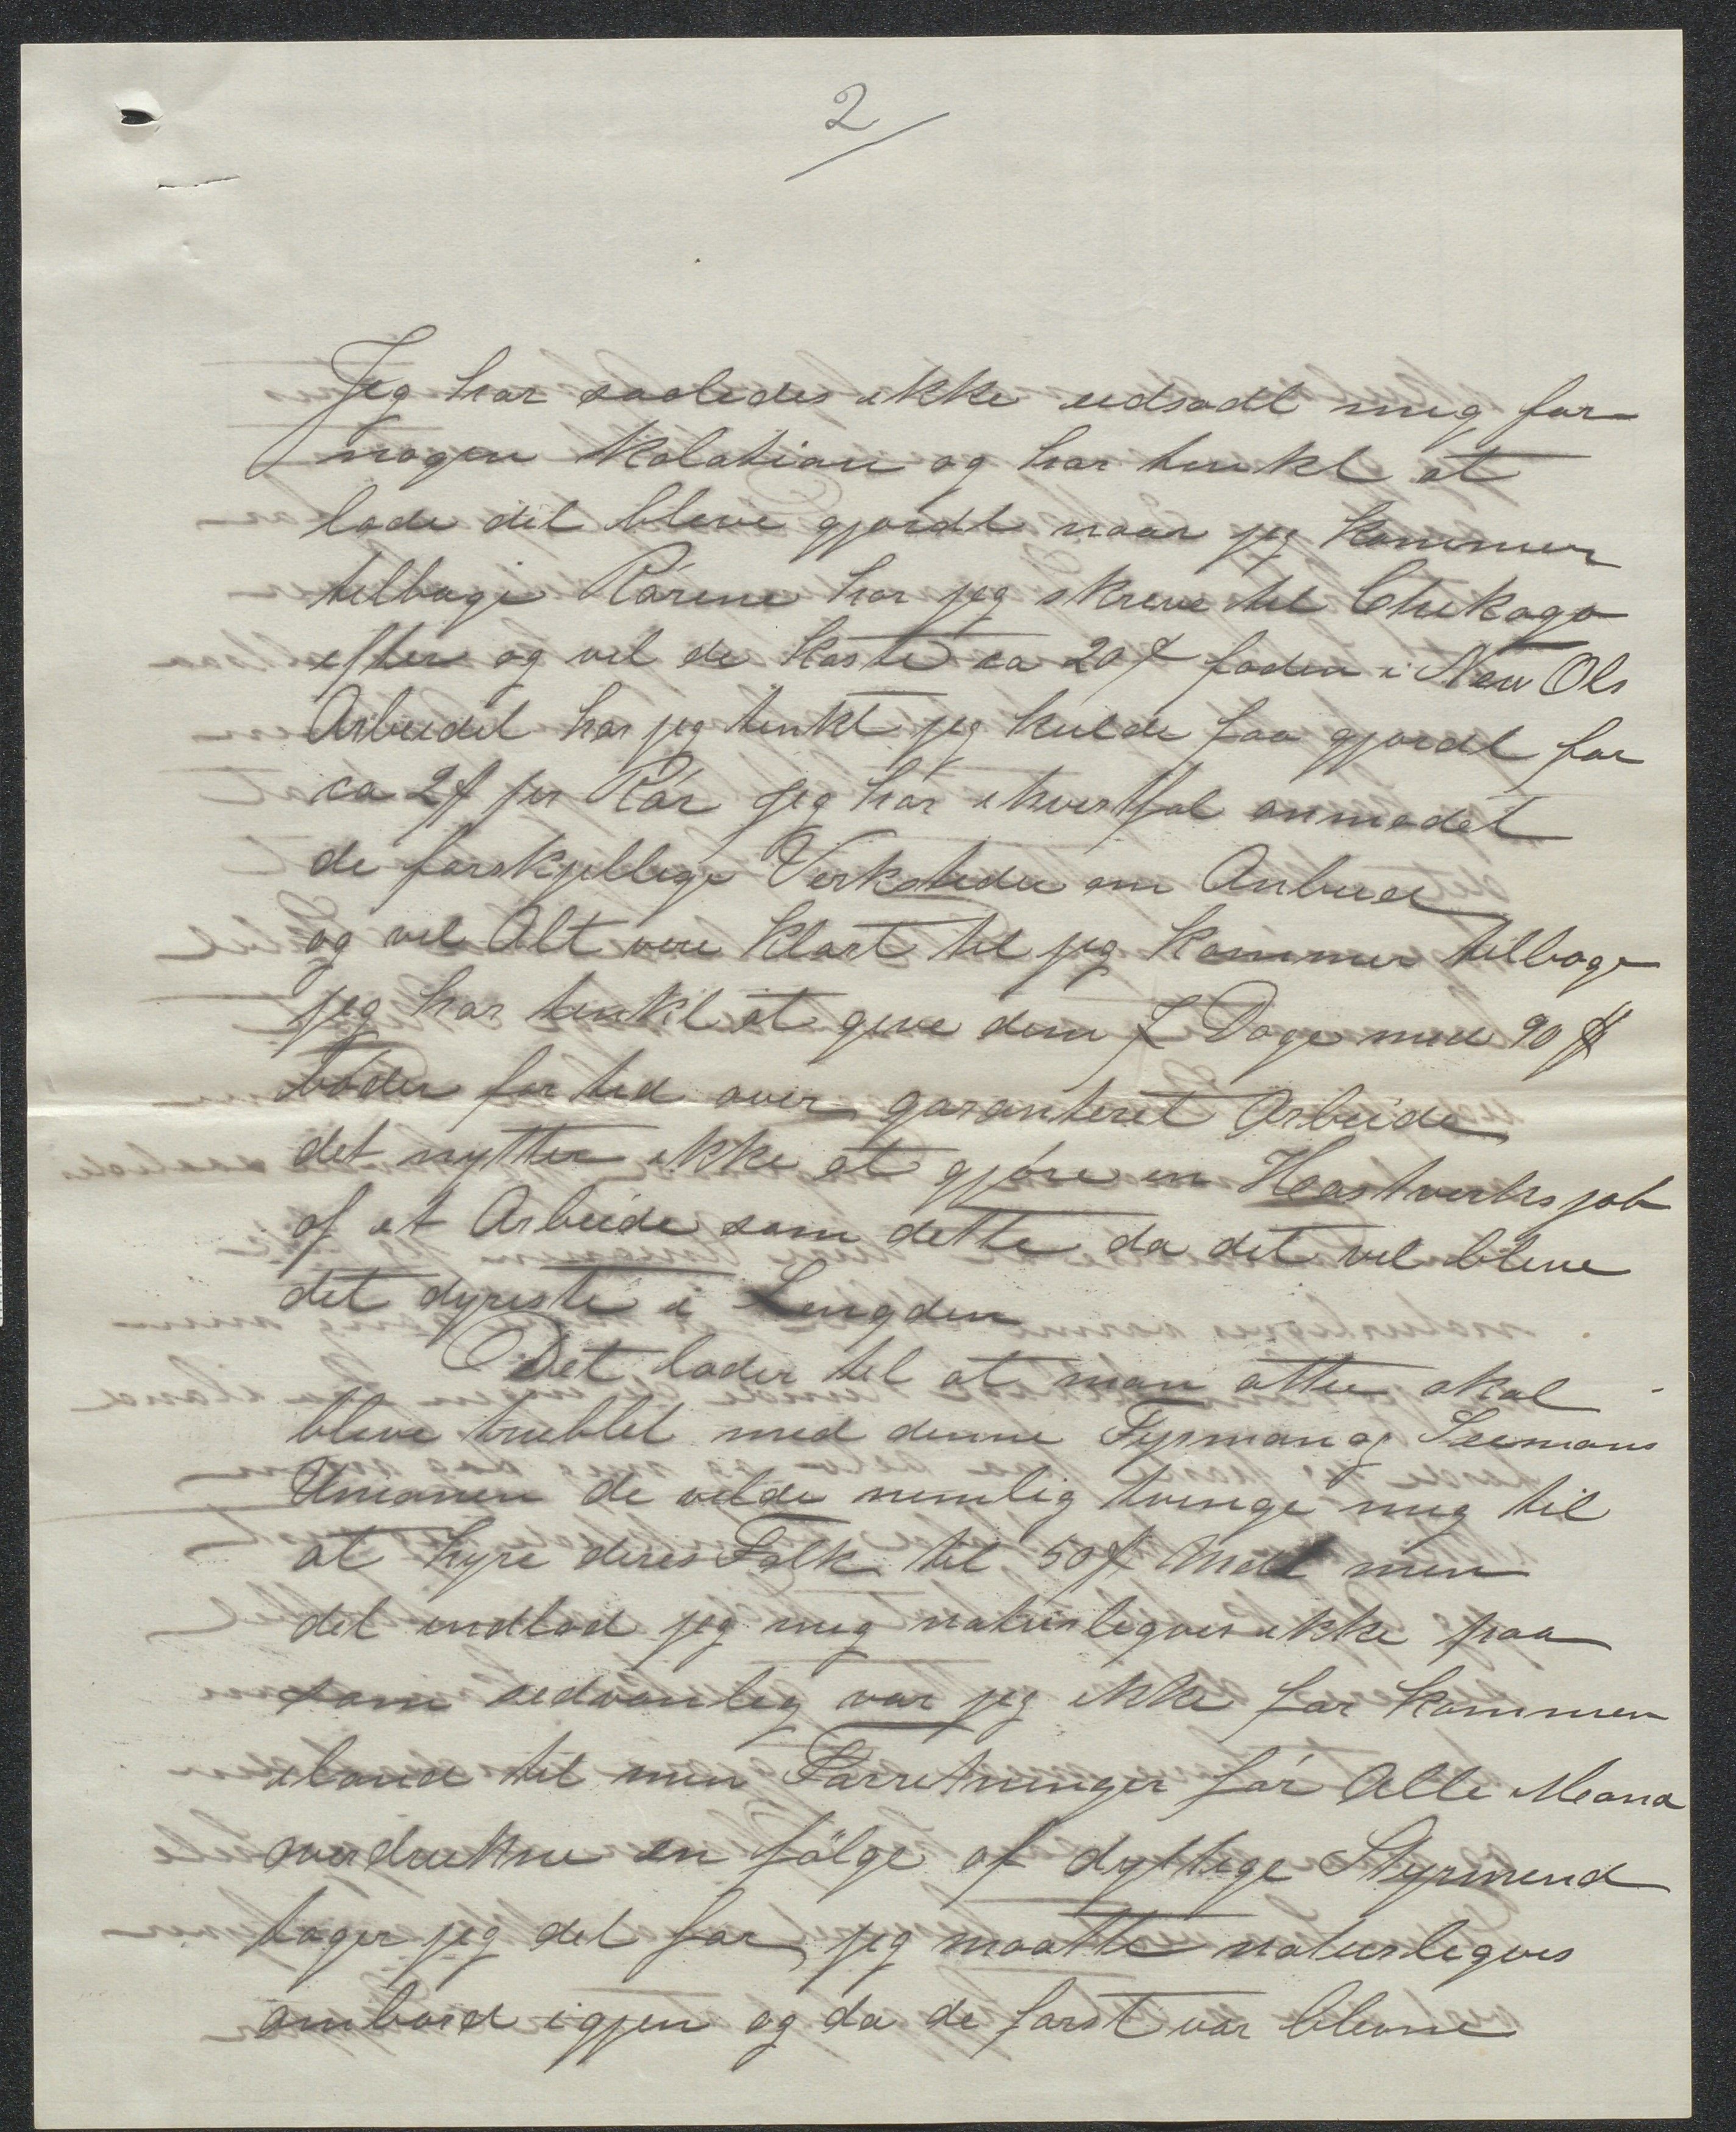 2
Jeg har saaledes ikke udsadt mig for
nogen Kalatian og har tenkt at
lade det bleve gjordt naar jeg Kommer
tilbage Rörene har jeg skreve til Chikago
efter og vil de Koste ca 20 ¢ foden i New Ols
Arbeidet har jeg tenkt jeg kulde faa gjordt for
ca 2 $ per Rör jeg har ihvertfal anmodet
de forskjellige Verksteder om Anbud
og vil Alt vere Klart til jeg Kommer tilbage
jeg har tenkt at geve dem 7 Dage med 90 $
böder for tid over garanteret Arbeide
det nytter ikke at gjöre en Hastverks job
af et Arbeide som dette da det vil bleve
det dyreste i Lengden
Det lader til at man atter skal
bleve trublet med denne Fyrman og Seemans
Unionen de vilde nemlig tvinge mig til
at hyre deres Folk til 50 $ Mdl men
det indlod jeg mig naturligvis ikke paa
som sedvanlig var jeg ikke för Kommen
iland til min Forretninger för Alle Mand
overdrukne en fölge af dygtige Styrmend
tager jeg det for, jeg maatte naturligves
ombord igjen og da de först var blevne